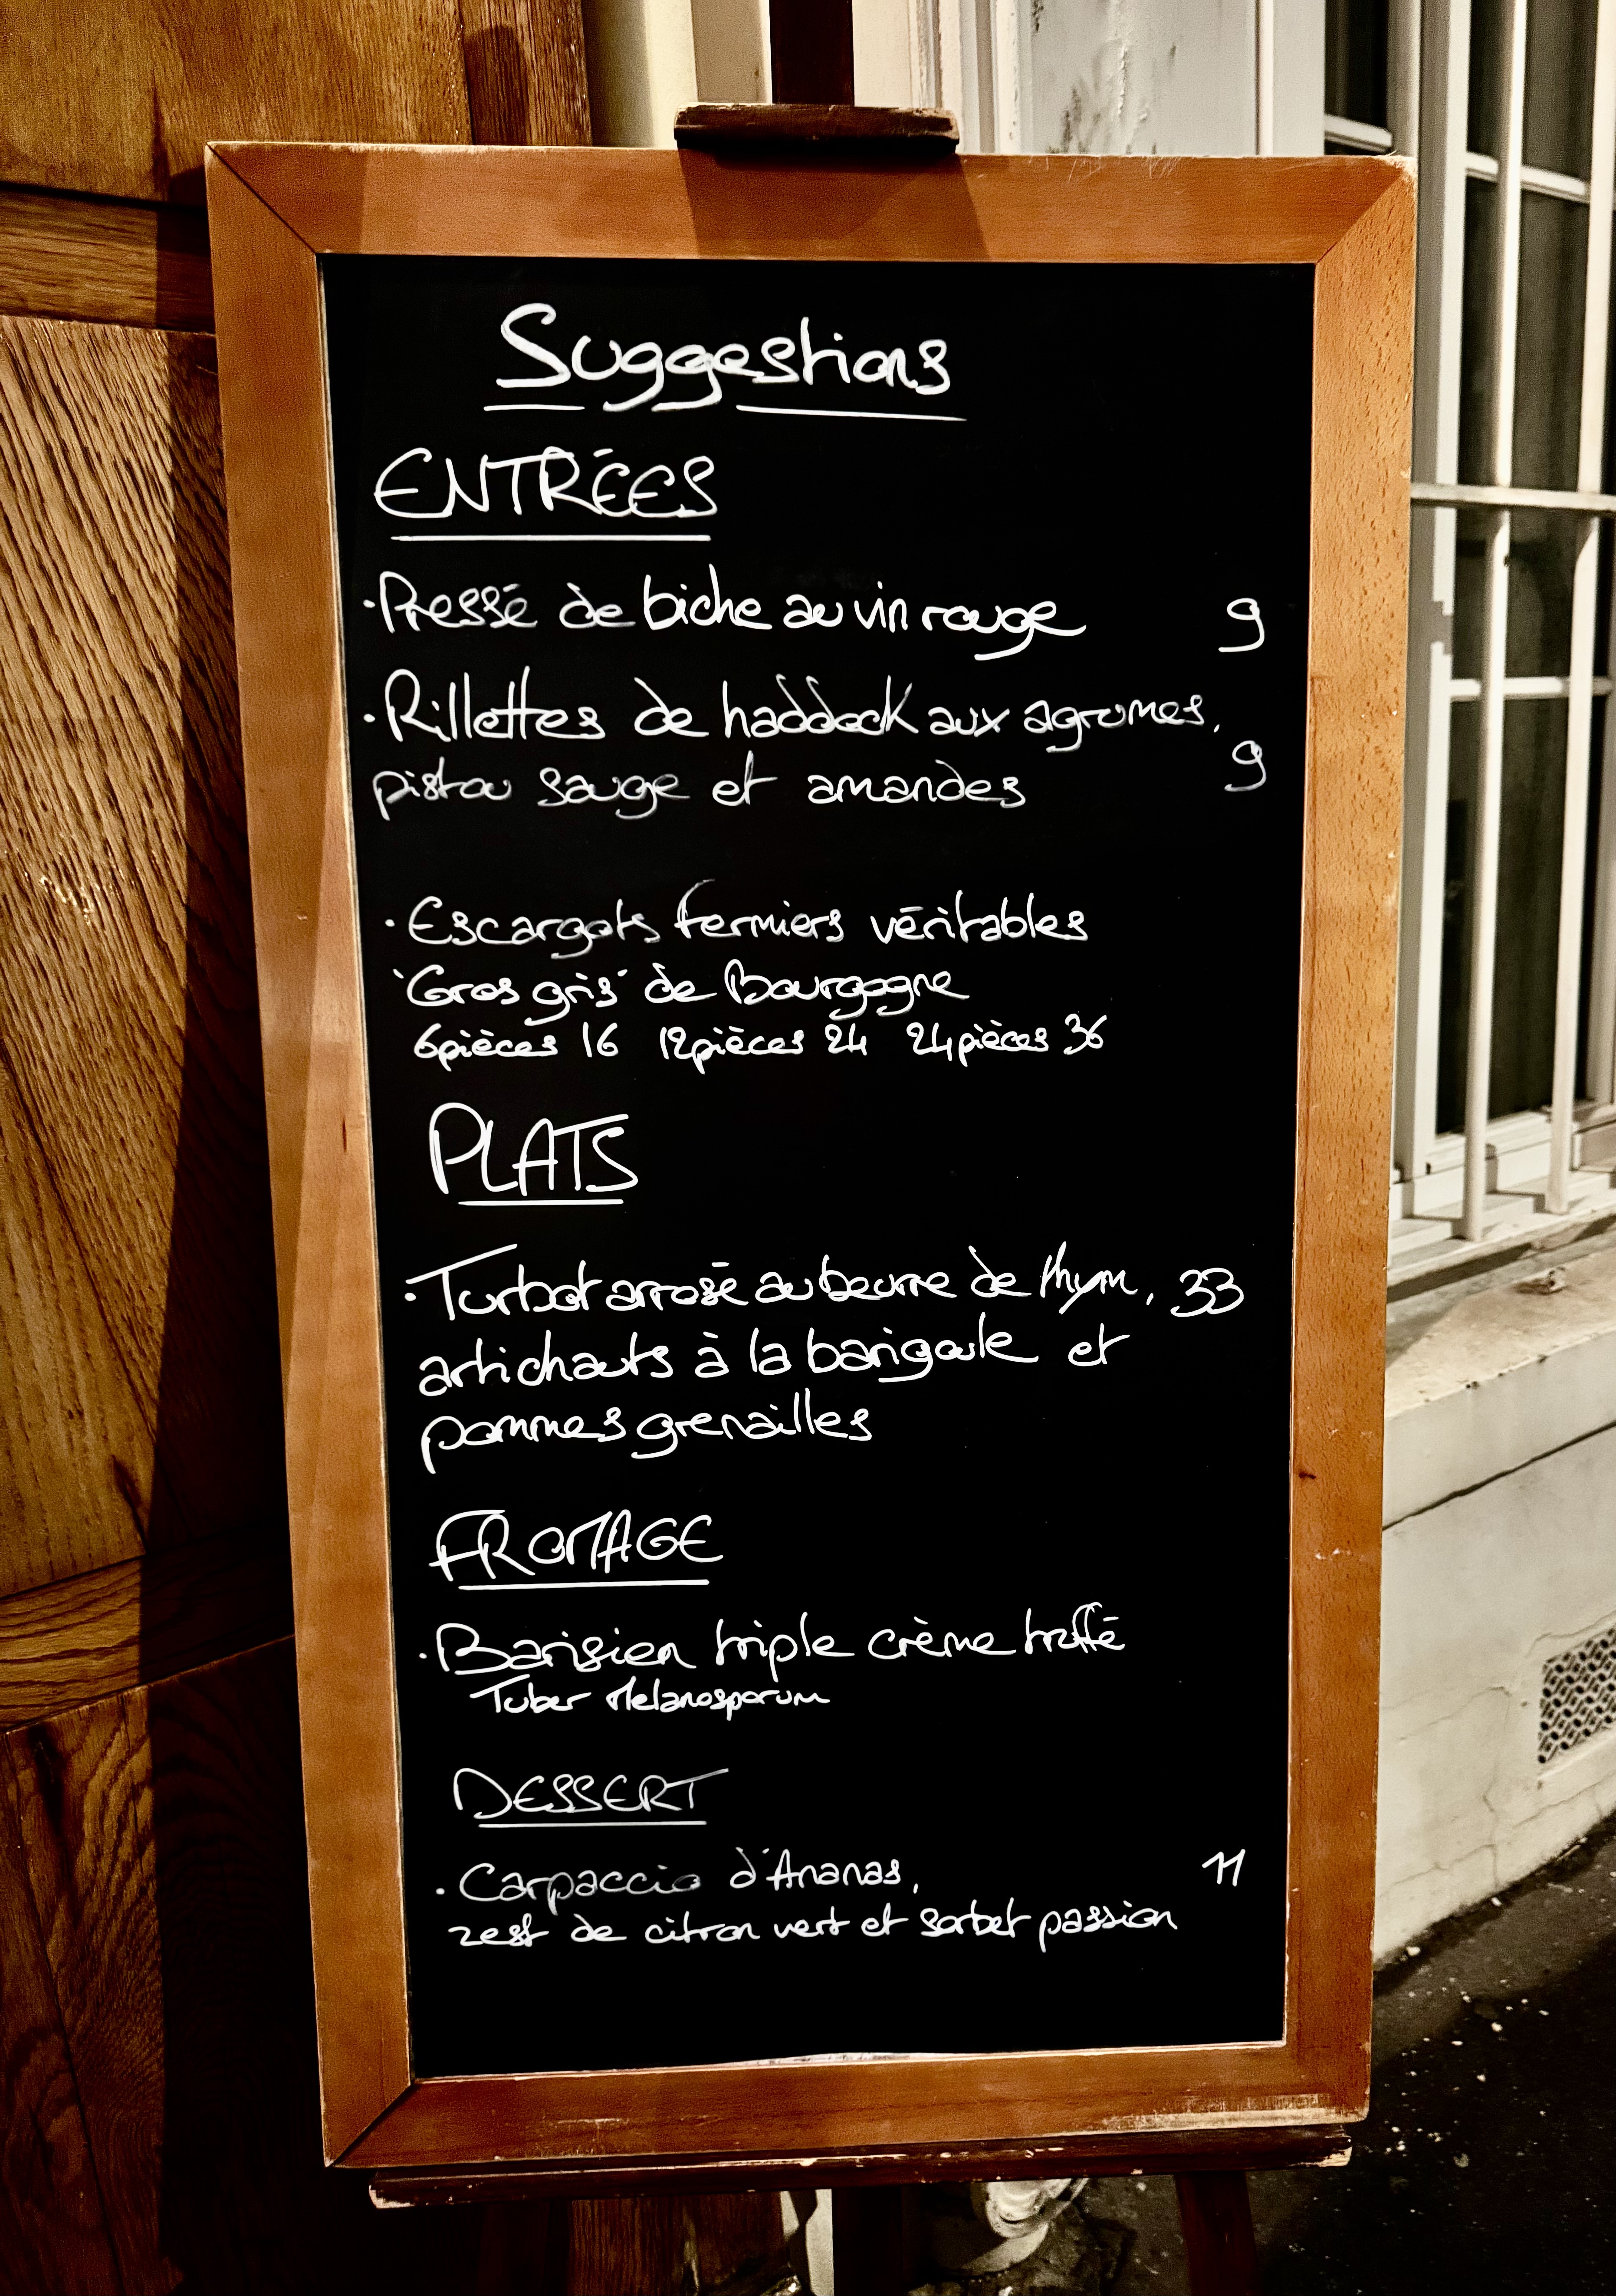 Suggestions
ENTRÉES
·Pressé de biche au vin rouge 9
·Rillettes de haddock aux agrumes, 9
pistou sauge et amandes
·Escargots fermiers véritables
"Gros gris" de Bourgogne
6pièces 16 12pièces 24 24pièces 36
PLATS
·Turbot arrosé au beurre de thym, 33
artichauts à la barigoule et
pommes grenailles
FROMAGE
·Barisien triple crème truffé
Tuber Melanosporum
DESSERT
·Carpaccio d'Ananas, 11
zest de citron vert et sorbet passion